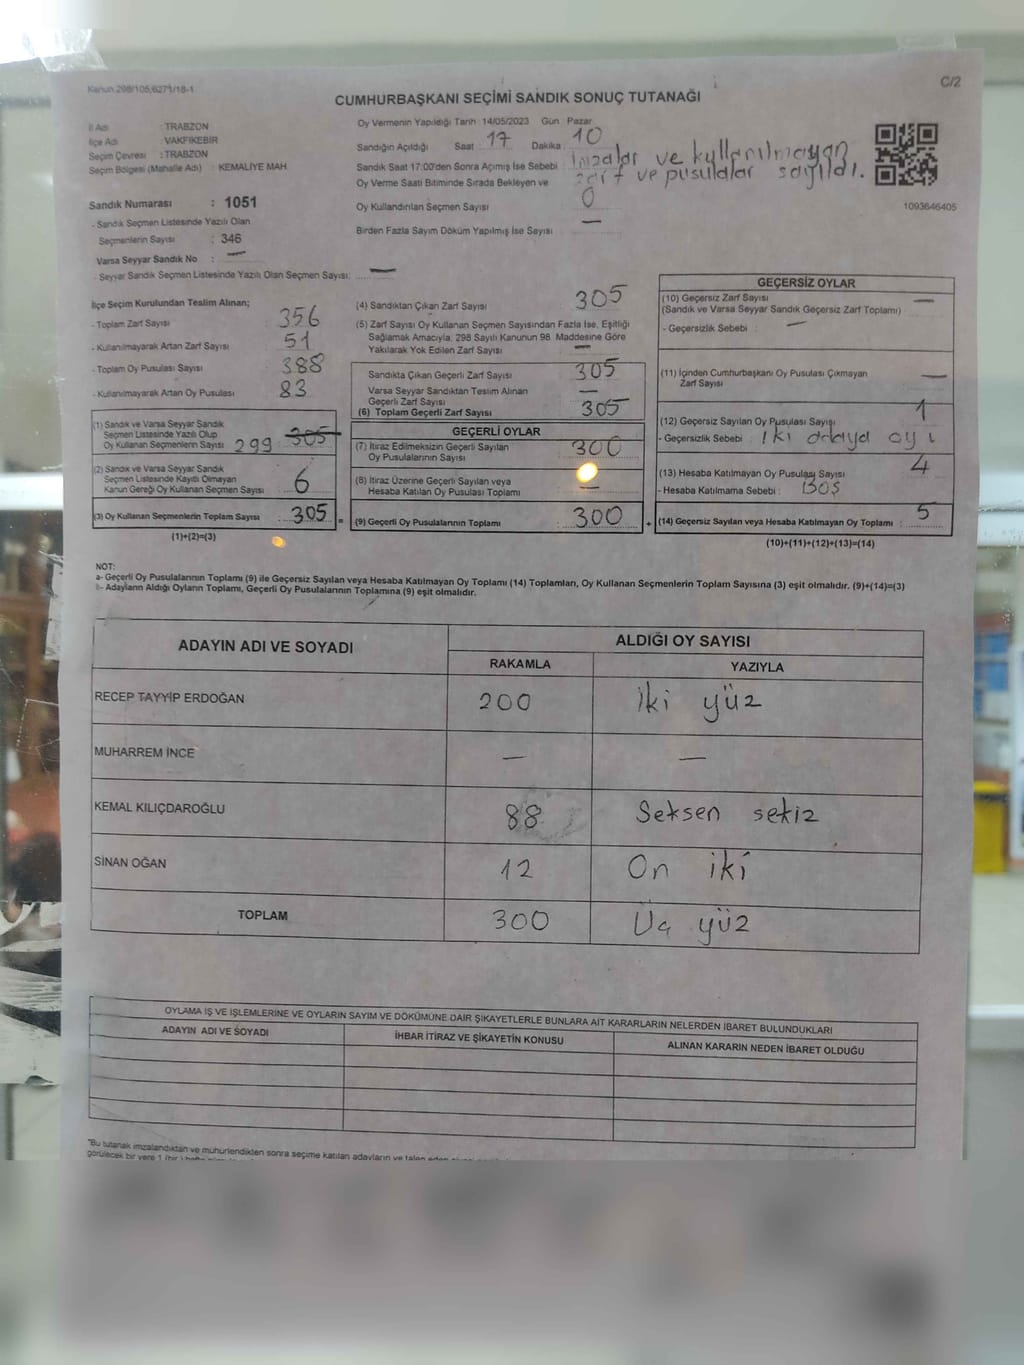 Kanun 298/105,6271/18-1
C/2
CUMHURBAŞKANI SEÇİMİ SANDIK SONUÇ TUTANAĞI
İl Adı : TRABZON
İlçe Adı : VAKFIKEBİR
Seçim Çevresi : TRABZON
Seçim Bölgesi (Mahalle Adı) : KEMALİYE MAH
Sandık Numarası : 1051
- Sandık Seçmen Listesinde Yazılı Olan
Seçmenlerin Sayısı : 346
Varsa Seyyar Sandık No : —
- Seyyar Sandık Seçmen Listesinde Yazılı Olan Seçmen Sayısı: —
Oy Vermenin Yapıldığı Tarih : 14/05/2023 Gün : Pazar
Sandığın Açıldığı Saat : 17 Dakika : 10
Sandık Saat 17:00'den Sonra Açımış İse Sebebi : İmzalar ve kullanılmayan
zarf ve pusulalar sayıldı.
Oy Verme Saati Bitiminde Sırada Bekleyen ve
Oy Kullandırılan Seçmen Sayısı : 0
Birden Fazla Sayım Döküm Yapılmış İse Sayısı : —
1093646405
İlçe Seçim Kurulundan Teslim Alınan;
- Toplam Zarf Sayısı : 356
- Kullanılmayarak Artan Zarf Sayısı : 51
- Toplam Oy Pusulası Sayısı : 388
- Kullanılmayarak Artan Oy Pusulası : 83
(1) Sandık ve Varsa Seyyar Sandık
Seçmen Listesinde Yazılı Olup
Oy Kullanan Seçmenlerin Sayısı : 299 305
(2) Sandık ve Varsa Seyyar Sandık
Seçmen Listesinde Kayıtlı Olmayan
Kanun Gereği Oy Kullanan Seçmen Sayısı : 6
(3) Oy Kullanan Seçmenlerin Toplam Sayısı : 305 =
(1)+(2)=(3)
(4) Sandıktan Çıkan Zarf Sayısı : 305
(5) Zarf Sayısı Oy Kullanan Seçmen Sayısından Fazla İse, Eşitliği
Sağlamak Amacıyla, 298 Sayılı Kanunun 98. Maddesine Göre
Yakılarak Yok Edilen Zarf Sayısı : —
Sandıkta Çıkan Geçerli Zarf Sayısı : 305
Varsa Seyyar Sandıktan Teslim Alınan
Geçerli Zarf Sayısı : —
(6) Toplam Geçerli Zarf Sayısı : 305
GEÇERLİ OYLAR
(7) İtiraz Edilmeksizin Geçerli Sayılan
Oy Pusulalarının Sayısı : 300
(8) İtiraz Üzerine Geçerli Sayılan veya
Hesaba Katılan Oy Pusulası Toplamı : —
(9) Geçerli Oy Pusulalarının Toplamı : 300 +
GEÇERSİZ OYLAR
(10) Geçersiz Zarf Sayısı : —
(Sandık ve Varsa Seyyar Sandık Geçersiz Zarf Toplamı)
- Geçersizlik Sebebi : —
(11) İçinden Cumhurbaşkanı Oy Pusulası Çıkmayan
Zarf Sayısı : —
(12) Geçersiz Sayılan Oy Pusulası Sayısı : 1
- Geçersizlik Sebebi : İki adaya oy
(13) Hesaba Katılmayan Oy Pusulası Sayısı : 4
- Hesaba Katılmama Sebebi : BOŞ
(14) Geçersiz Sayılan veya Hesaba Katılmayan Oy Toplamı : 5
(10)+(11)+(12)+(13)=(14)
NOT:
a- Geçerli Oy Pusulalarının Toplamı (9) ile Geçersiz Sayılan veya Hesaba Katılmayan Oy Toplamı (14) Toplamları, Oy Kullanan Seçmenlerin Toplam Sayısına (3) eşit olmalıdır. (9)+(14)=(3)
b- Adayların Aldığı Oyların Toplamı, Geçerli Oy Pusulalarının Toplamına (9) eşit olmalıdır.
ADAYIN ADI VE SOYADI
ALDIĞI OY SAYISI
RAKAMLA YAZIYLA
RECEP TAYYİP ERDOĞAN 200 İki yüz
MUHARREM İNCE — —
KEMAL KILIÇDAROĞLU 88 Seksen sekiz
SİNAN OĞAN 12 On iki
TOPLAM 300 Üç yüz
OYLAMA İŞ VE İŞLEMLERİNE VE OYLARIN SAYIM VE DÖKÜMÜNE DAİR ŞİKAYETLERLE BUNLARA AİT KARARLARIN NELERDEN İBARET BULUNDUKLARI
ADAYIN ADI VE SOYADI İHBAR İTİRAZ VE ŞİKAYETİN KONUSU ALINAN KARARIN NEDEN İBARET OLDUĞU
*Bu tutanak imzalandıktan ve mühürlendikten sonra seçime katılan adayların ve talep eden
görülecek bir yere 1 (bir) hafta